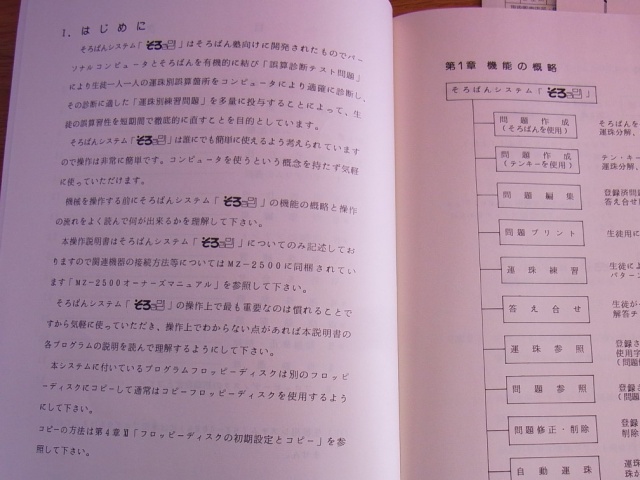 1．はじめに
そろばんシステム「そろ」はそろばん塾向けに開発されたものでパー
ソナルコンピュータとそろばんを有機的に結び「誤算診断テスト問題」
により生徒一人一人の運珠別誤算箇所をコンピュータにより適確に診断し、
その診断に適した「運珠別練習問題」を多量に投与することによって、生
徒の誤算習性を短期間で徹底的に直すことを目的としています。
そろばんシステム「そろ」は誰にでも簡単に使えるよう考えられています
ので操作は非常に簡単です。コンピュータを使うという概念を持たず気軽
に使っていただけます。
機械を操作する前にそろばんシステム「そろ」の機能の概略と操作
の流れをよく読んで何が出来るかを理解して下さい。
本操作説明書はそろばんシステム「そろ」についてのみ記述してお
りますので関連機器の接続方法等についてはMZ-2500に同梱されてい
ます「MZ-2500オーナーズマニュアル」を参照して下さい。
そろばんシステム「そろ」の操作上で最も重要なのは慣れることで
すから気軽に使っていただき、操作上でわからない点があれば本説明書の
各プログラムの説明を読んで理解するようにして下さい。
本システムに付いているプログラムフロッピーディスクは別のフロッピ
ーディスクにコピーして通常はコピーフロッピーディスクを使用するよう
にして下さい。
コピーの方法は第4章Ⅱ「フロッピーディスクの初期設定とコピー」を参
照して下さい。
第1章 機能の概略
そろばんシステム「そろ」
問題作成
（そろばんを使用）
そろばんを
運珠分解、
問題作成
（テンキーを使用）
テン・キー
運珠分解、
問題編集
登録済問題
答え合せ
問題プリント
生徒用に
運珠練習
生徒によ
パターン
答え合せ
生徒が
解答チ
運珠参照
登録さ
使用字
（問題
問題参照
登録さ
（問題
問題修正・削除
登録
削除
自動運珠
運珠
珠が